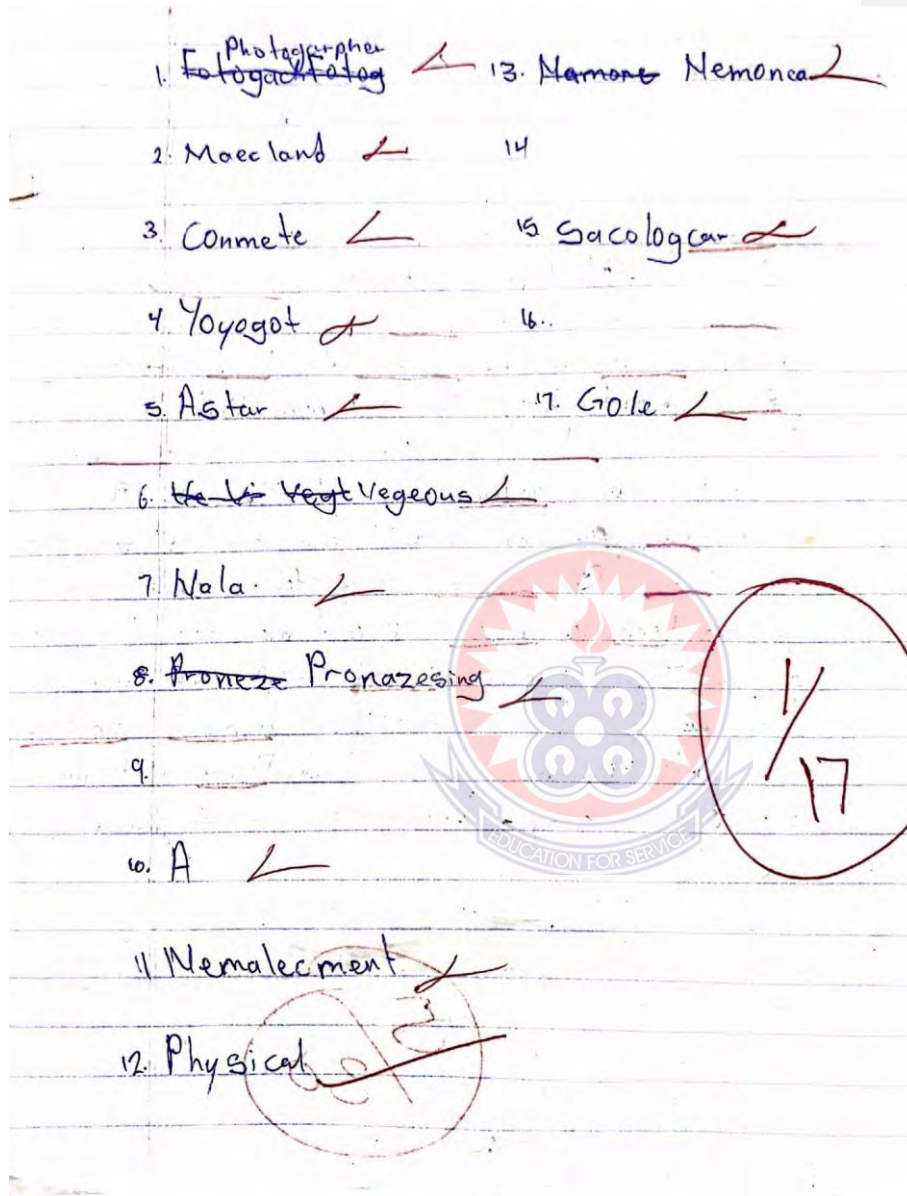 Photogarpher
1. Fotogac Fotog
2. Maecland
3. Conmete
4. Yoyogot
5. Astar
6. Vegeous
7. Nala.
8. Proneze Pronazesing
9.
10. A
11 Nemalecment
12. Physical
13. Namone Nemonca
14
15 Sacologcar
16..
17. Gole
1/17
EDUCATION FOR SERVICE